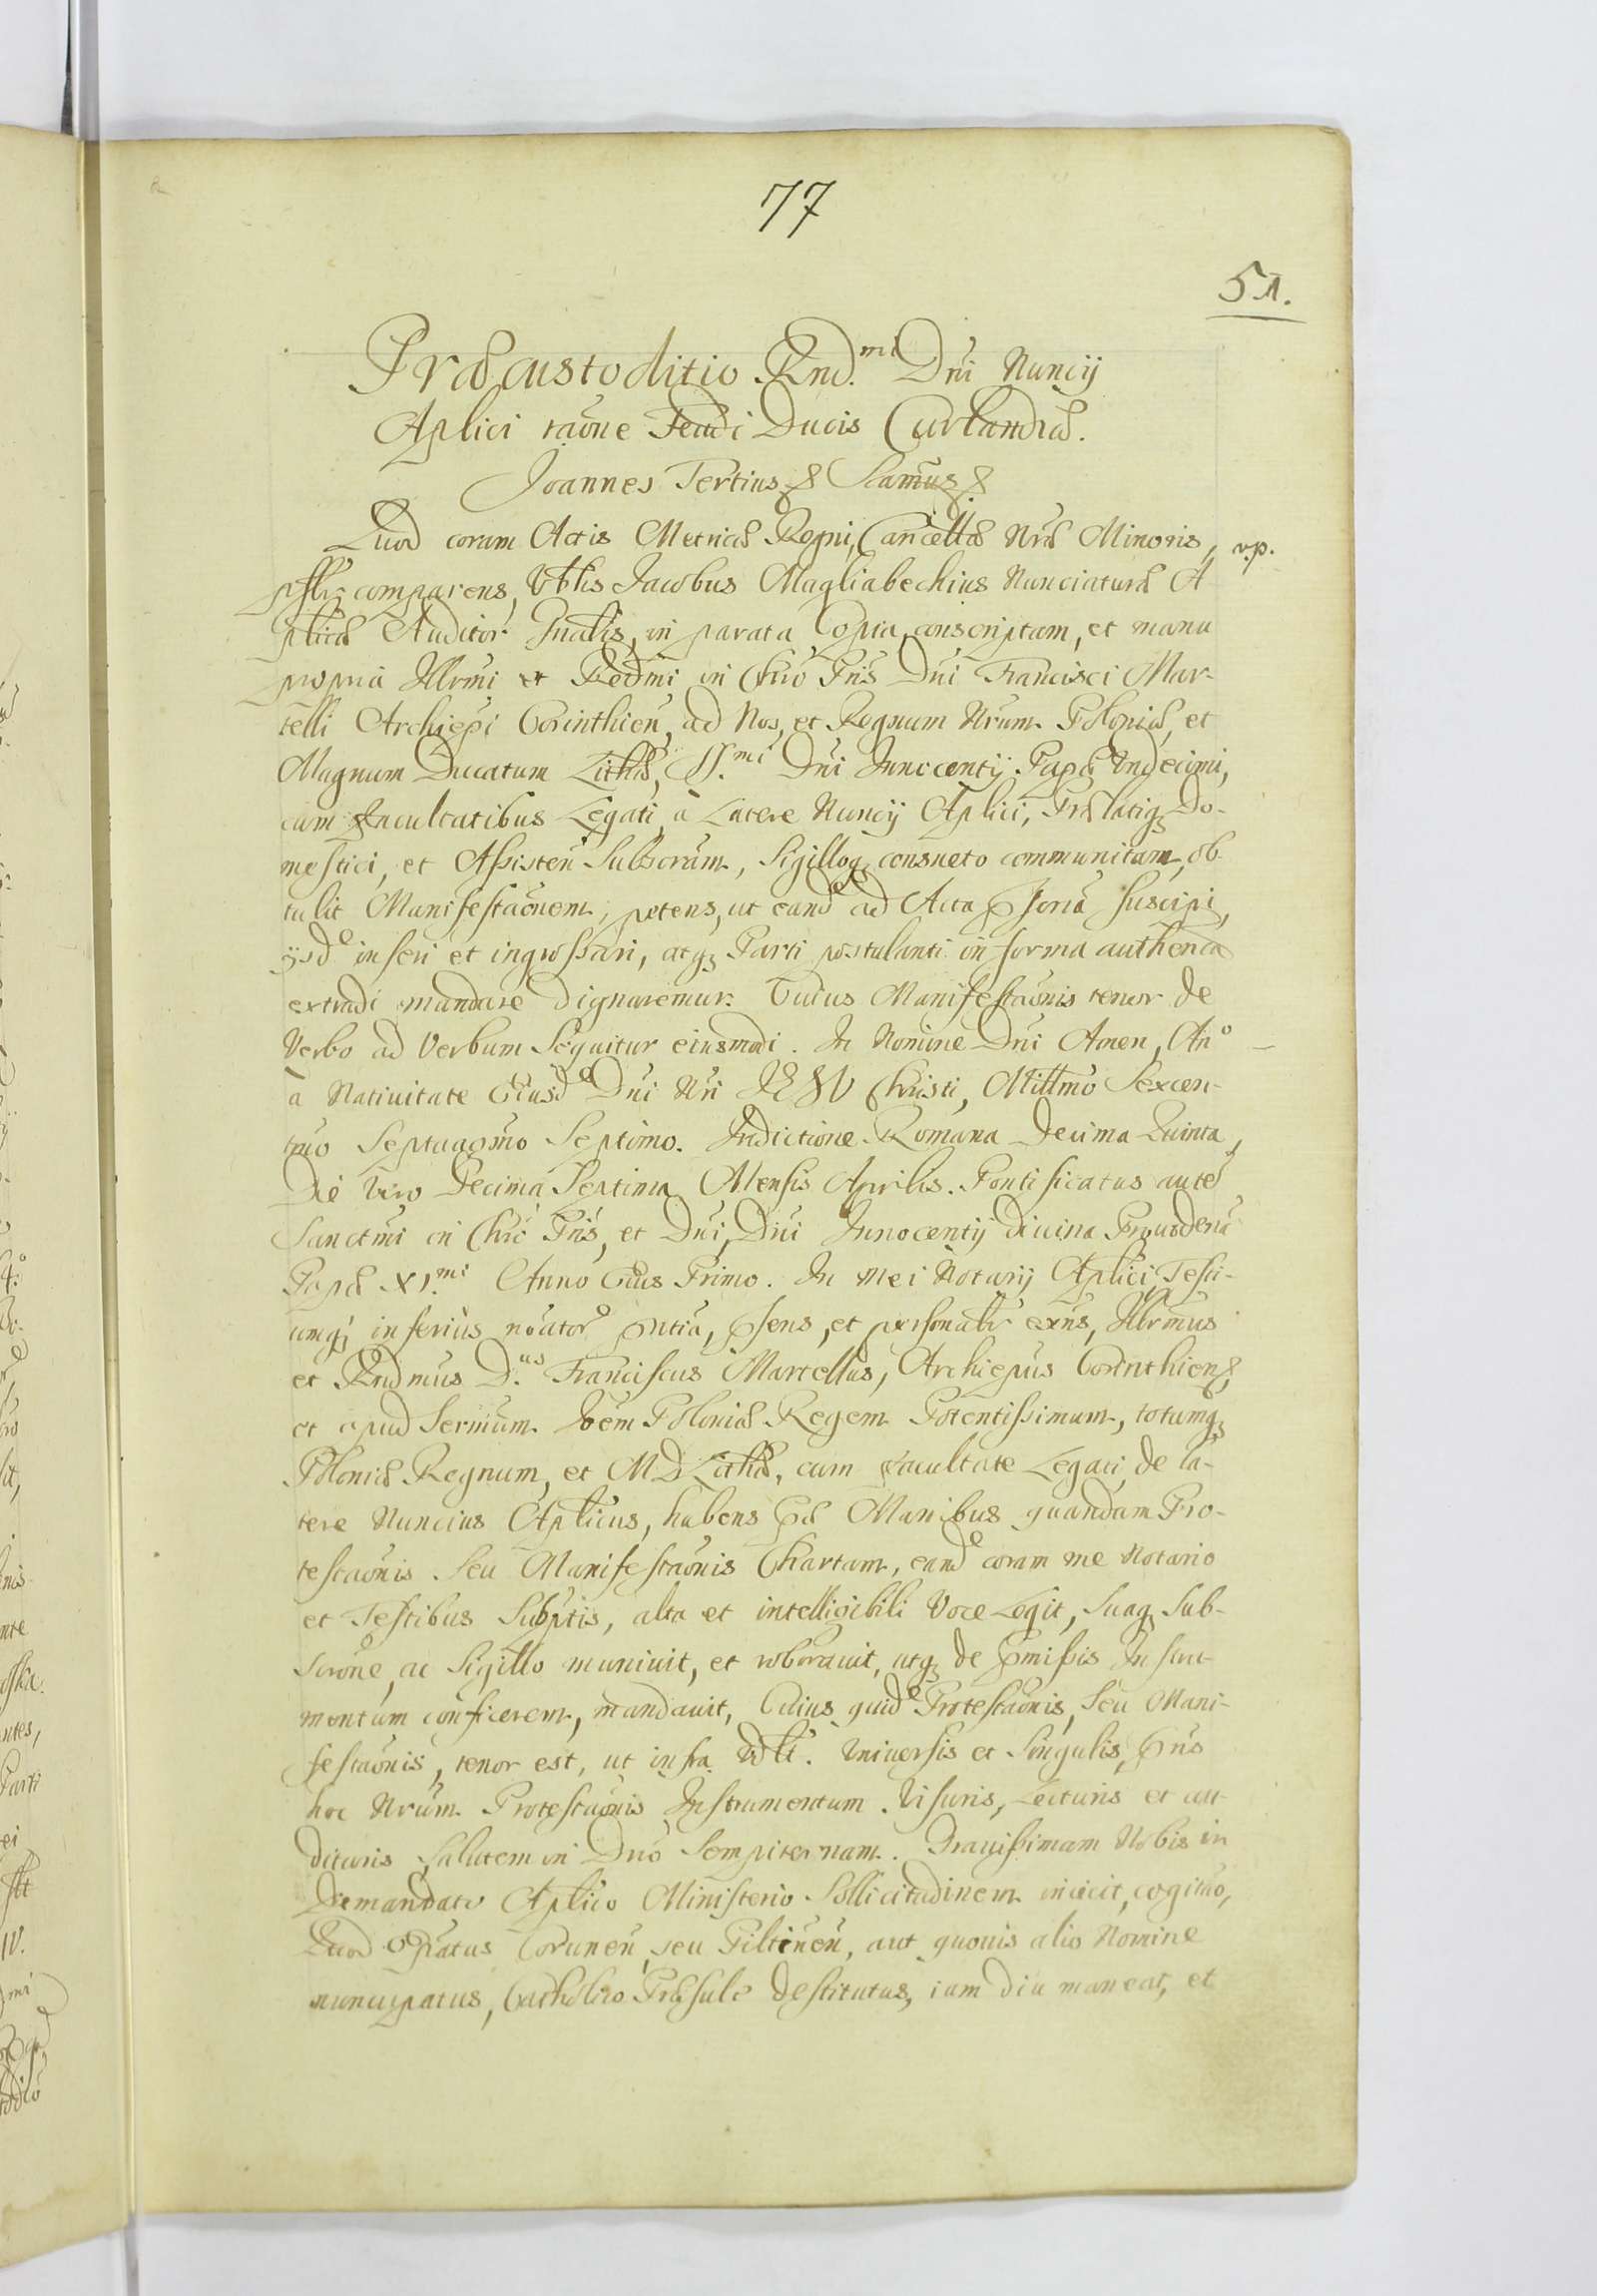 77
51.
Præcustoditio Rnd.mi Dni Nuncij
Aplici raōne Feudi Ducis Curlandiæ.
Joannes Tertius & Scamus &
Quod coram Actis Metricæ Regni, Cancellæ Nræ Minoris, v.p.
psłr comparens, Vblis Jacobus Magliabechius Nunciaturæ A-
plicæ Auditor Gnalis, in parata Copia conscriptam, et manu
propria Illrmi et Redmi in Chro Pris Dni Francisci Mar-
telli Archiepi Corinthien, ad Nos, et Regnum Nrum Poloniæ, et
Magnum Ducatum Lithæ, SS.mi Dni Innocentij Papæ Undecimi,
cum Facultatibus Legati, à Latere Nuncij Aplici, Prælatiq Do-
mestici, et Assisten Subscram, Sigilloq consueto communitam, ob-
tulit Manifestaōnem, petens, ut eand ad Acta pnsoria suscipi,
ijsd inseri et ingrossari, atq Parti postulanti in forma authenca
extradi mandare dignaremur. Cuius Manifestaōnis tenor de
Verbo ad Verbum Sequitur eiusmodi. In Nomine Dni Amen, Ano
à Nativitate Eiusd Dni Nri JESU Christi, Millmo Sexcen-
tmo Septuagmo Septimo. Indictione Romana Decima Quinta,
Die Vero Decima Septima Mensis Aprilis. Pontificatus aute
Sanctmi in Chro Pris, et Dni, Dni Innocentij divina Providena
Papæ XI.mi Anno Eius Primo. In mei Notarij Aplici, Testi-
umq; inferius noator pntia, psens, et personalr exns, Illrmus
et Rndmus D.us Franciscus Martellus, Archiepus Corinthien,
et apud Sermum Joem Poloniæ Regem Potentissimum, totumq
Poloniæ Regnum, et M D Lithæ, cum Facultate Legati, de la-
tere Nuncius Aplicus, habens præ Manibus quandam Pro-
testaōnis Seu Manifestaōnis Chartam, eand coram me Notario
et Testibus Subptis, alta et intelligibili Voce Legit, Suaq Sub-
scrōne, ac Sigillo muniuit, et roborauit, utq de pmissis Instru-
mentum conficerem, mandauit, Cuius quid Protestaōnis, Seu Mani-
festaōnis, tenor est, ut infra Vdlt. Vniversis et Singulis, pns
hoc Nrum Protestaōnis Instrumentum Visuris, Lecturis et au-
dituris Salutem in Dno Sempiternam. Grauissimam Nobis in
Demandato Aplico Ministerio Sollicitudinem inicit, cogitao,
Quod Epatus Curunen, seu Piltinen, aut quouis alio Nomine
nuncupatus, Catholico Præsule destitutus, iam diu maneat, et